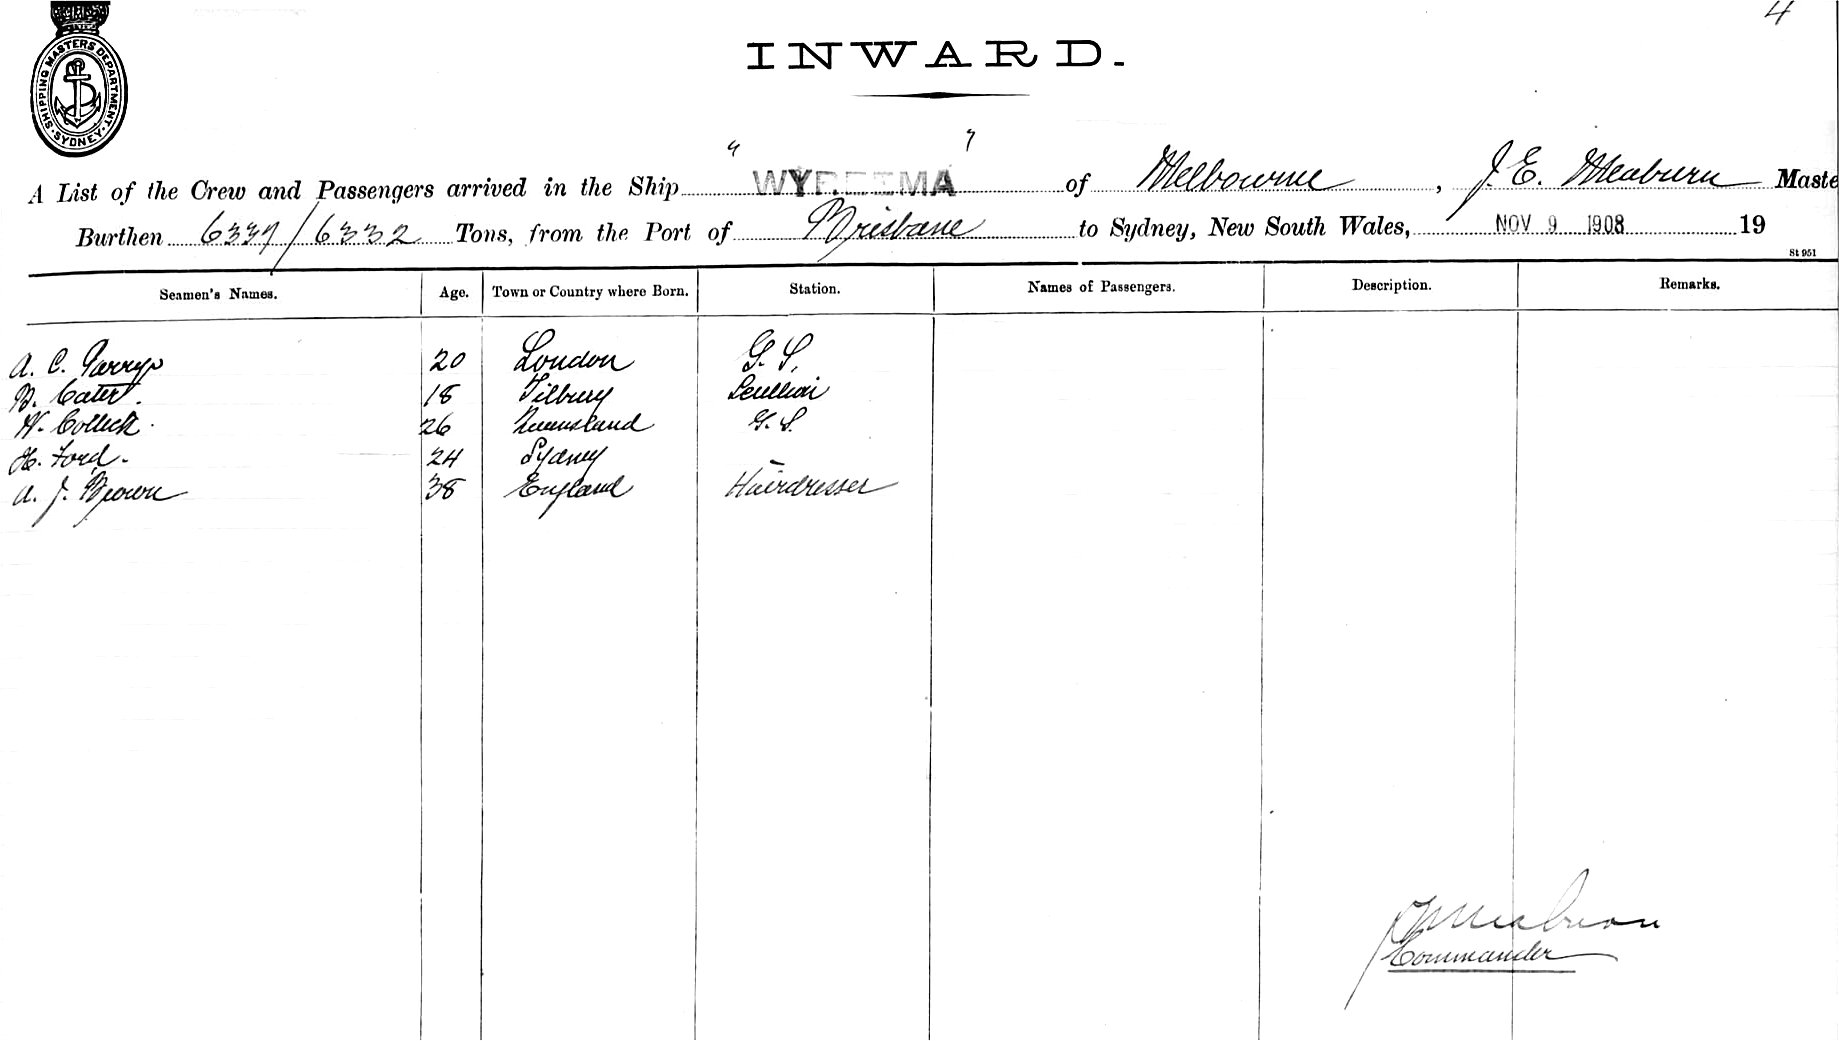 4
SHIPPING MASTERS DEPARTMENT. SYDNEY.
INWARD.
A List of the Crew and Passengers arrived in the Ship "WYREEMA" of Melbourne, J. E. Meaburn Maste
Burthen 6337/6332 Tons, from the Port of Brisbane to Sydney, New South Wales, NOV 9 1908 19
St 951
Seamen's Names. Age. Town or Country where Born. Station. Names of Passengers. Description. Remarks.
A. C. 20 London G. S.
B. Cater. 18 Tilbury Scullion
W. Collick. 26 Queensland G. S.
H. Ford. 24 Sydney -
A. J. Brown 38 England Hairdresser
Meaburn
Commander